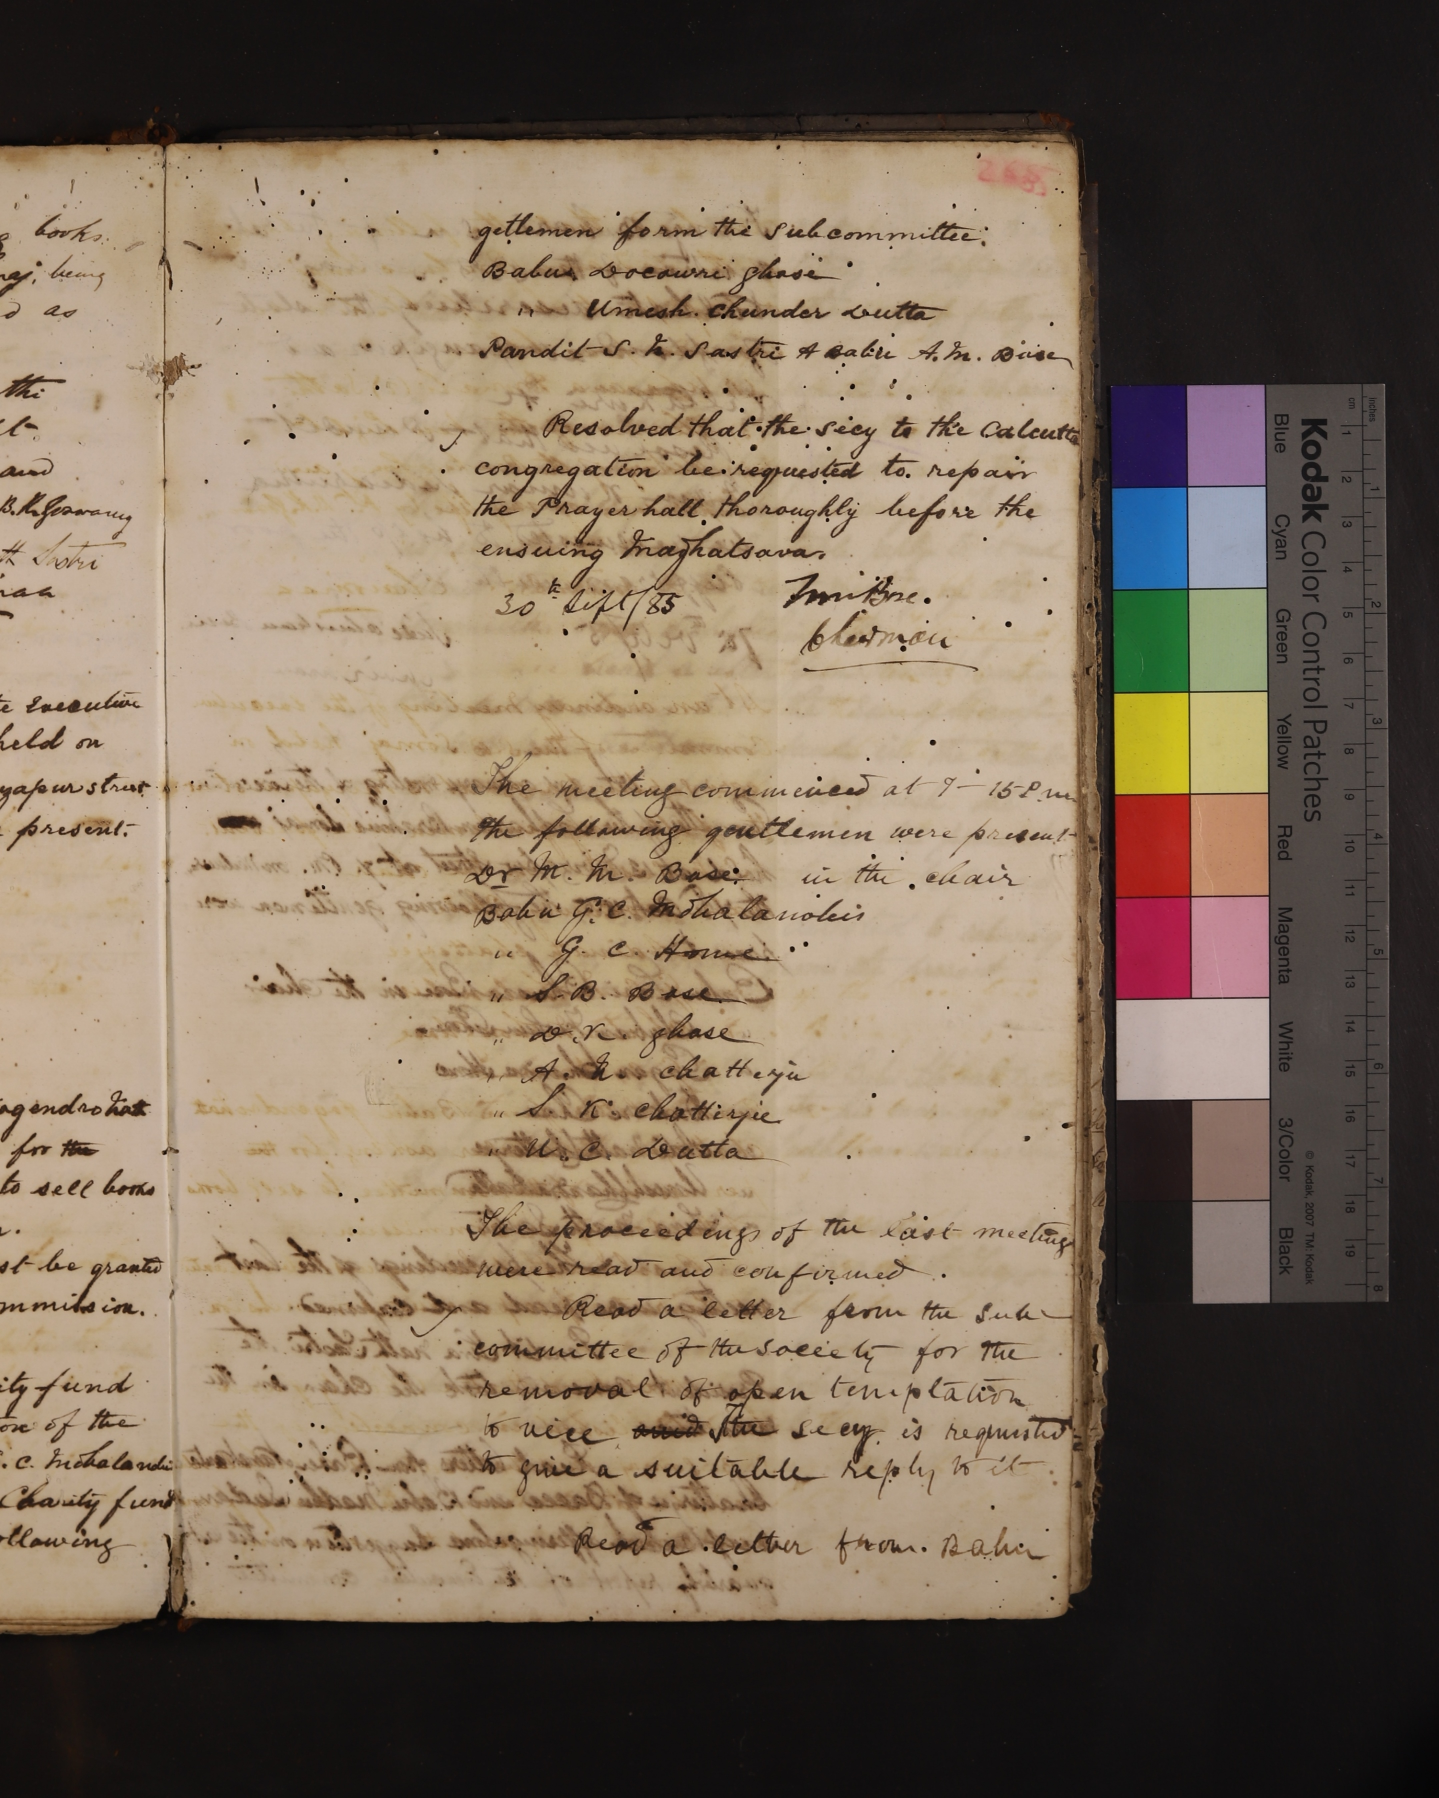 books.
being
d as
the
and
B.K. Goswamy
Sastri
te Executive
held on
yapur street
present.
ogendro Nath
for the
to sell books
st be granted
mmission.
ity fund
on of the
. C. Mohalanobi
Charity fund
ollowing
265
getlemen form the subcommittee.
Babus Docowri ghose
" Umesh Chunder Dutta
Pandit S. N. Sastri & Babu A. M. Bose
Resolved that the secy to the Calcutta
congregation be requested to repair
the Prayer hall thoroughly before the
ensuing Maghatsava.
30th Sept/85
Bose.
Chairman
The meeting commenced at 7-15 P.m
the following gentlemen were present
Dr M. M. Bose in the chair
Babu G. C. Mohalanobis
" G. C. Home
" S. B. Bose
" D. K. ghose
" A. N. chatterju
" S. K. Chatterjie
" U. C. Dutta
The proceedings of the last meeting
were read and confirmed.
Read a letter from the sub-
committee of the society for the
removal of open temptation
to vice and the secy is requested
to give a suitable reply to it
Read a letter from Babu
Kodak Color Control Patches
© Kodak, 2007 TM: Kodak
Blue Cyan Green Yellow Red Magenta White 3/Color Black
inches 1 2 3 4 5 6 7 8
cm 1 2 4 5 6 7 8 9 10 11 12 13 14 15 16 17 18 19